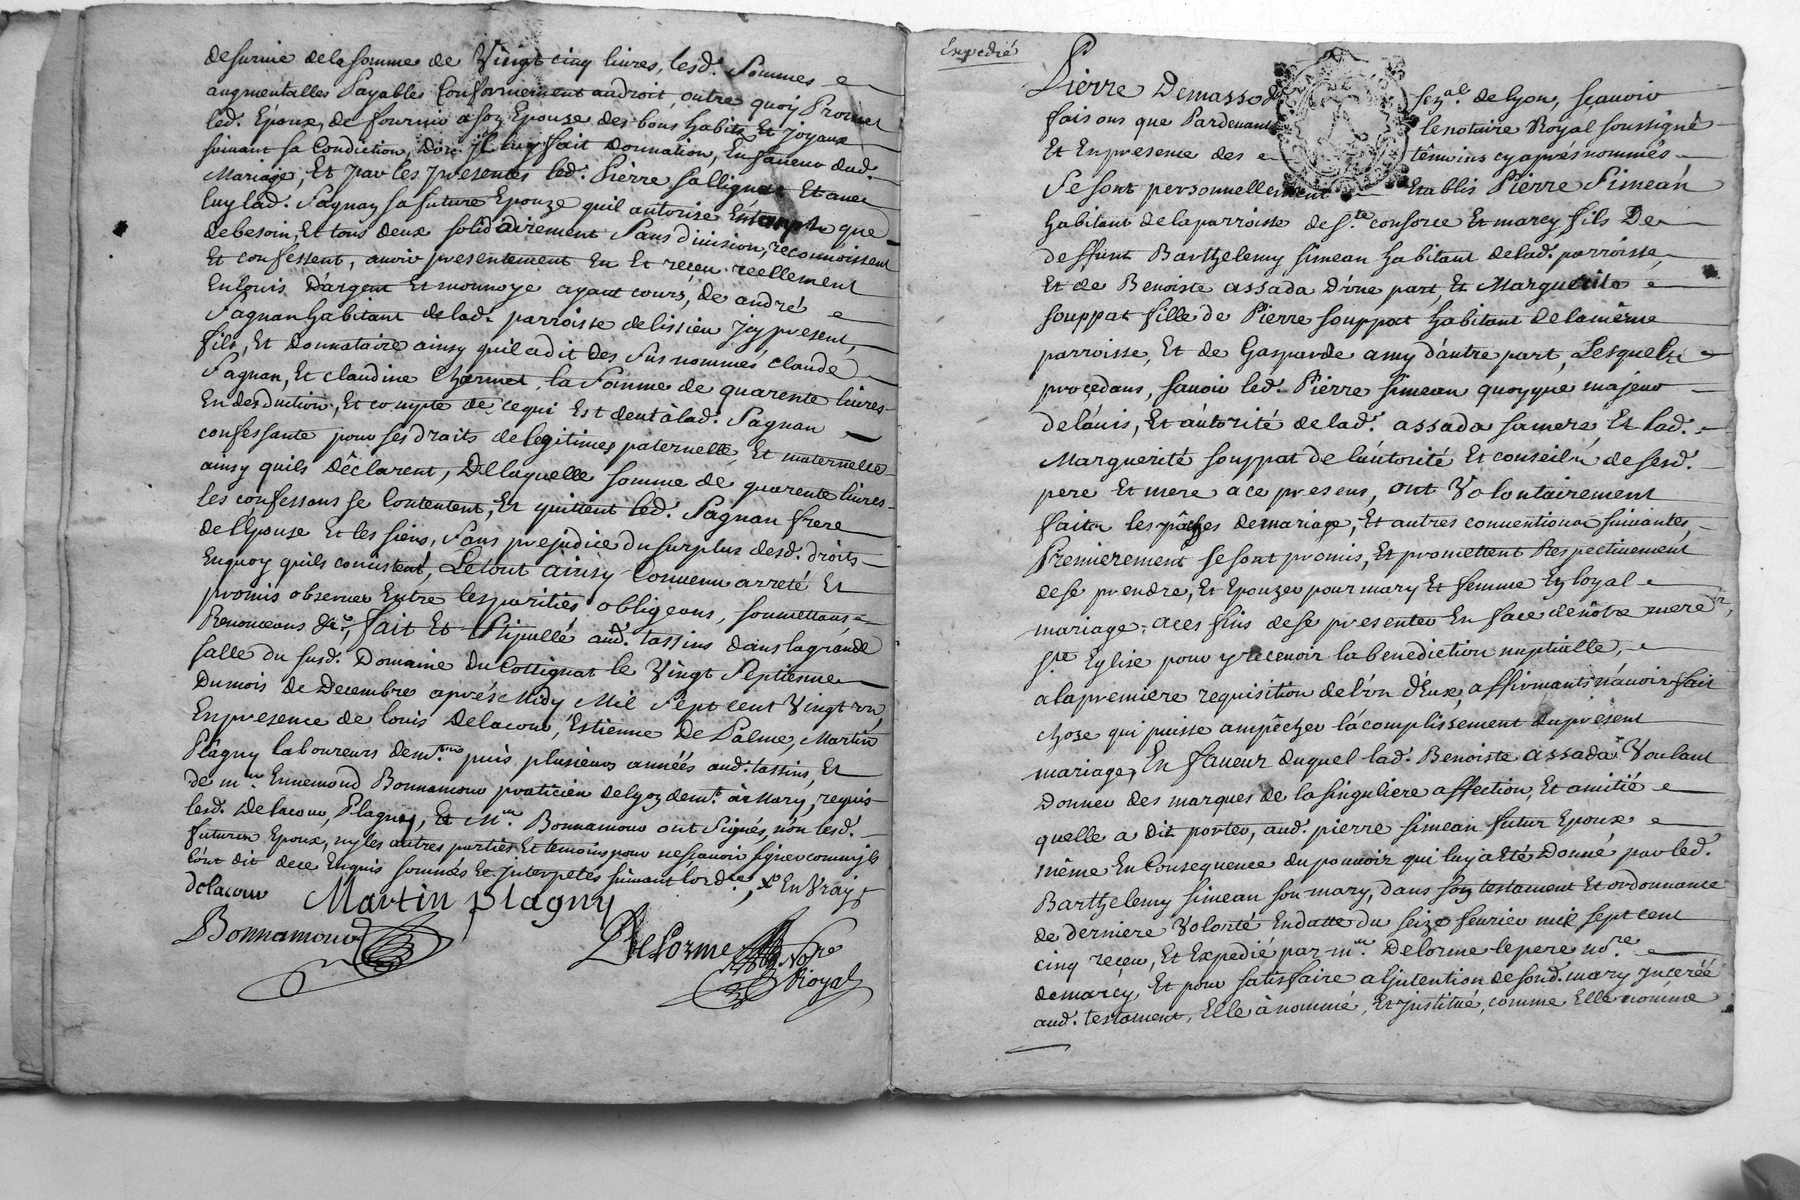 de survie de la somme de Vingt cinq livres, lesd. Sommes
augmentalles Payables Conformement au droit, outre quoy Promet
led. Epoux, de fournir a son Epouze des bons habits Et Joyaux
suivant sa Condiction, Dont il luy fait Donnation, En faveur dud.
Mariage, Et Par les presentes led. Pierre Sallignat Et avec
luy lad. Sagnan sa future Epouze quil autorise Entant que
debesoin, Et tous deux solidairement Sans division, reconnoissent
Et confessent, avoir presentement Eu Et reçeu reellement
En Louis D'argent Et monnoye ayant cours, de andré
Sagnan habitant de lad. parroisse de lissieu Icy present,
fils, Et Donnataire ainsy quil a dit des sus nommés claude
Sagnan, Et claudine Charmet, la Somme de quarente livres
En desduction, Et compte de ce qui Est deut à lad. Sagnan
confessante pour ses droits de legitimes paternelle, Et maternelle
ainsy quils déclarent, De laquelle somme de quarente livres
les confessans se Contentent, Et quittent led. Sagnan frere
de l'Epouse Et les siens, Sans prejudice du surplus desd. droits
En quoy quils concistent, Le tout ainsy Convenu arreté Et
promis observer Entre les parities, obligeans, soumettans
Renonceans &c. fait Et Stipullé aud. tassins dans la grande
salle du susd. Domaine du Cottignat le Vingt Septiesme
Du mois de Decembre aprés Midy Mil Sept cent Vingt un,
En presence de louis Delacour, Estienne de Palme, Martin
Plagny laboureurs dem. puis plusieurs années aud. tassins, Et
de m. Ennemond Bonnamour praticien de lyon demt. à Mary, requis
lesd. Delacour, Plagny, Et Mr. Bonnamour ont Signés, non lesd.
futurs Epoux, ny les autres parties Et temoins pour ne scavoir signer comm' ils
l'ont dit de ce Enquis sommés Et Interpelés suivant l'ord.ce, En Vray
Delacour Martin plagny
Bonnamour Delorme
No.re
Royal
Expedié
Pierre Demasso sen.al de lyon, sçavoir
faisons que Pardevant le notaire Royal soussigné
Et En presence des témoins cy aprés nommés
Se sont personnellement Etablis Pierre Simeán
habitant de la parroisse de S.te consorce Et marcy fils De
deffunt Barthelemy simean habitant de lad. parroisse,
Et de Benoiste assada D'une part, Et Marguerite
souppat fille de Pierre souppat habitant de la même
parroisse, Et de Gasparde amy d'autre part, Lesquels
proçedans, savoir led. Pierre simean quoyque majeur
de l'avis, Et autorité de lad. assada sa mere, Et lad.
Marguerite souppat de l'autorité Et conseil de sesd.
pere Et mere a ce presens, ont Volontairement
fait les pâches de mariage, Et autres conventions suivantes,
Premierement se sont promis, Et promettent Respectivement
de se prendre, Et Epouzer pour mary Et femme En loyal
mariage, a ces fins de se presenter En face de nôtre mere
S.te Eglise pour y recevoir la benediction nuptialle,
a la premiere requisition de l'un d'Eux, affirmants n'avoir fait
chose qui puisse ampêcher l'acomplissement du present
mariage, En faveur duquel lad. Benoiste assada Voulant
Donner des marques de la singuliere affection, Et amitié
quelle a dit porter, aud. pierre simean futur Epoux
même En Consequence du pouvoir qui luy a Eté Donné par led.
Barthelemy simean son mary, dans son testament Et ordonnance
de derniere Volonté En datte du seize fevrier mil sept cent
cinq reçeu, Et Expedié par m. Delorme le pere no.re
de marcy, Et pour satisfaire a l'jntention de sond. mary Jnserée
aud. testament, Elle à nommé, Et Jnstitué, comme Elle nomme